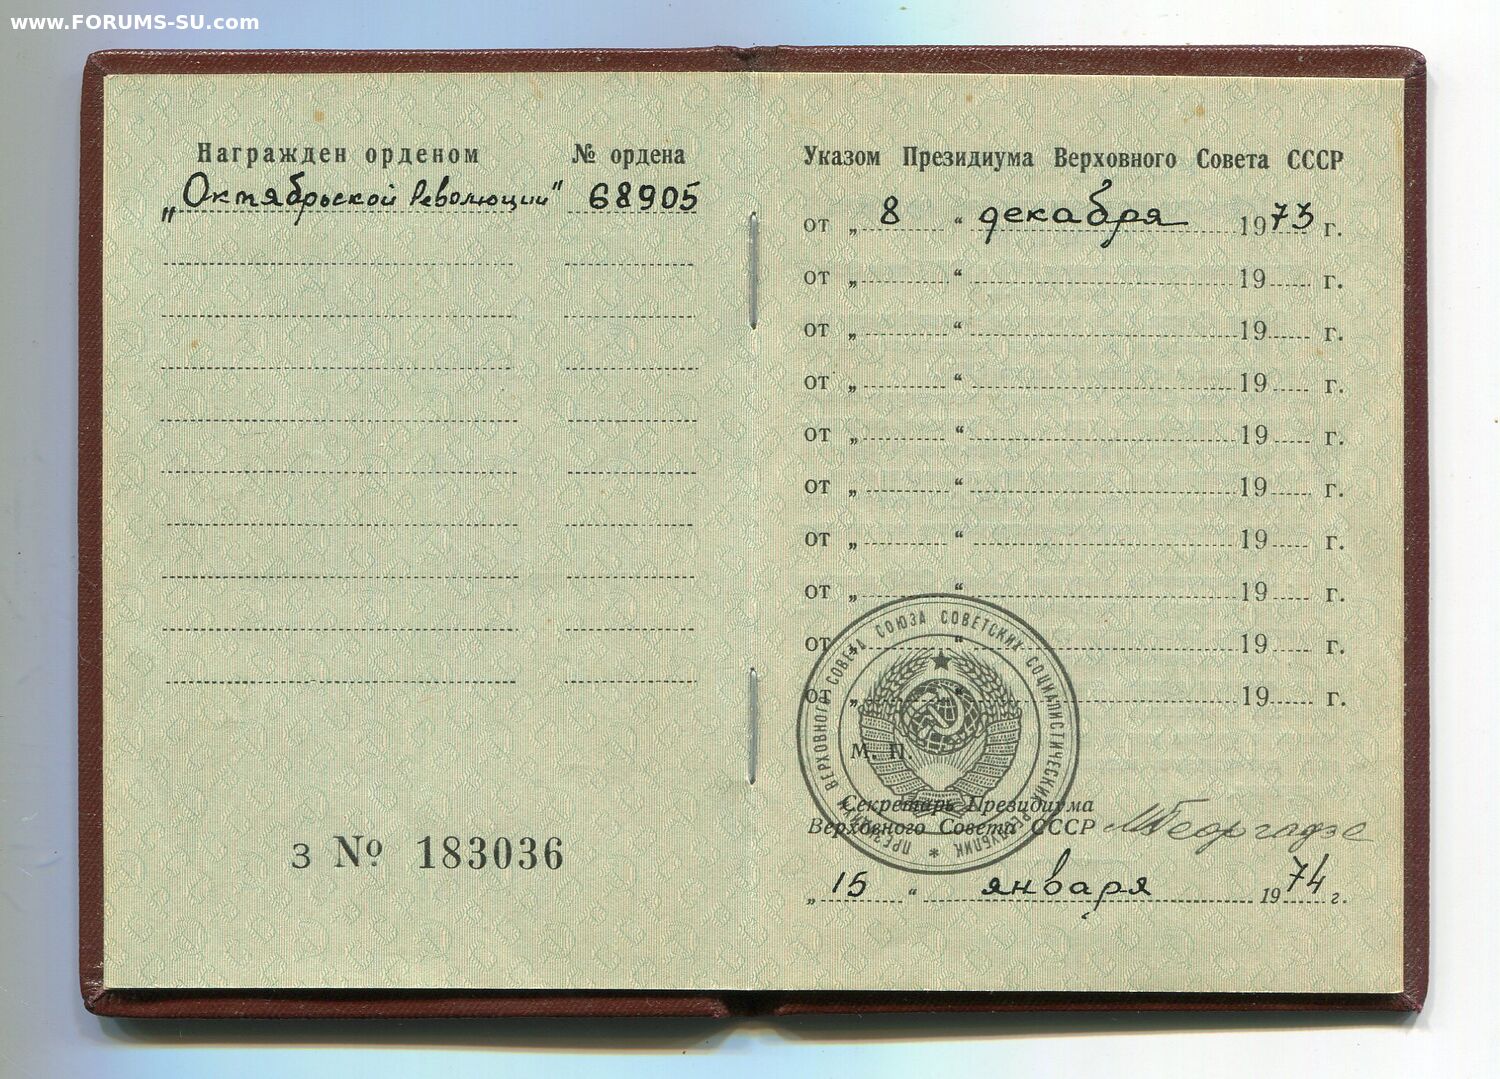 www.FORUMS-SU.com
Награжден орденом № ордена
„Октябрьской Революции" 68905
З № 183036
Указом Президиума Верховного Совета СССР
от „ 8 “ декабря 1973 г.
от „ “ 19 г.
от „ “ 19 г.
от „ “ 19 г.
от „ “ 19 г.
от „ “ 19 г.
от „ “ 19 г.
от „ “ 19 г.
от „ “ 19 г.
от „ “ 19 г.
ПРЕЗИДИУМ ВЕРХОВНОГО СОВЕТА СОЮЗА СОВЕТСКИХ СОЦИАЛИСТИЧЕСКИХ РЕСПУБЛИК *
М. П.
Секретарь Президиума
Верховного Совета СССР МГеоргадзе
„ 15 “ января 1974 г.